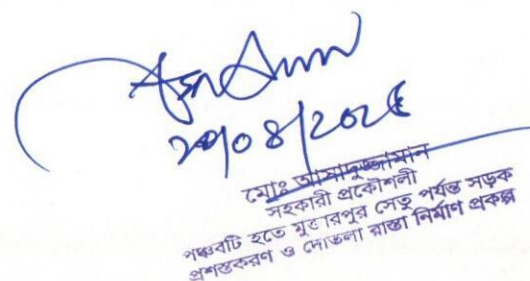 ২০/০৪/২০২৫
মোঃ আসাদুজ্জামান
সহকারী প্রকৌশলী
পঞ্চবটি হতে মুক্তারপুর সেতু পর্যন্ত সড়ক
প্রশস্তকরণ ও দোতলা রাস্তা নির্মাণ প্রকল্প